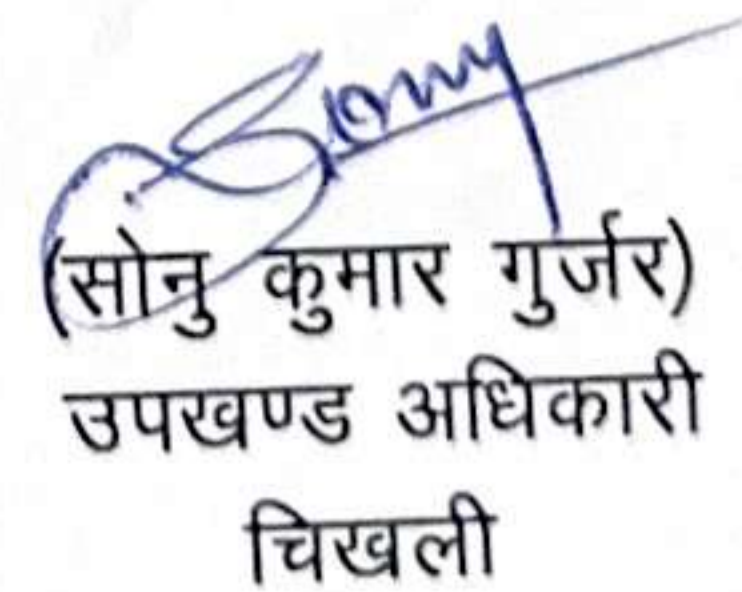 (सोनु कुमार गुर्जर)
उपखण्ड अधिकारी
चिखली